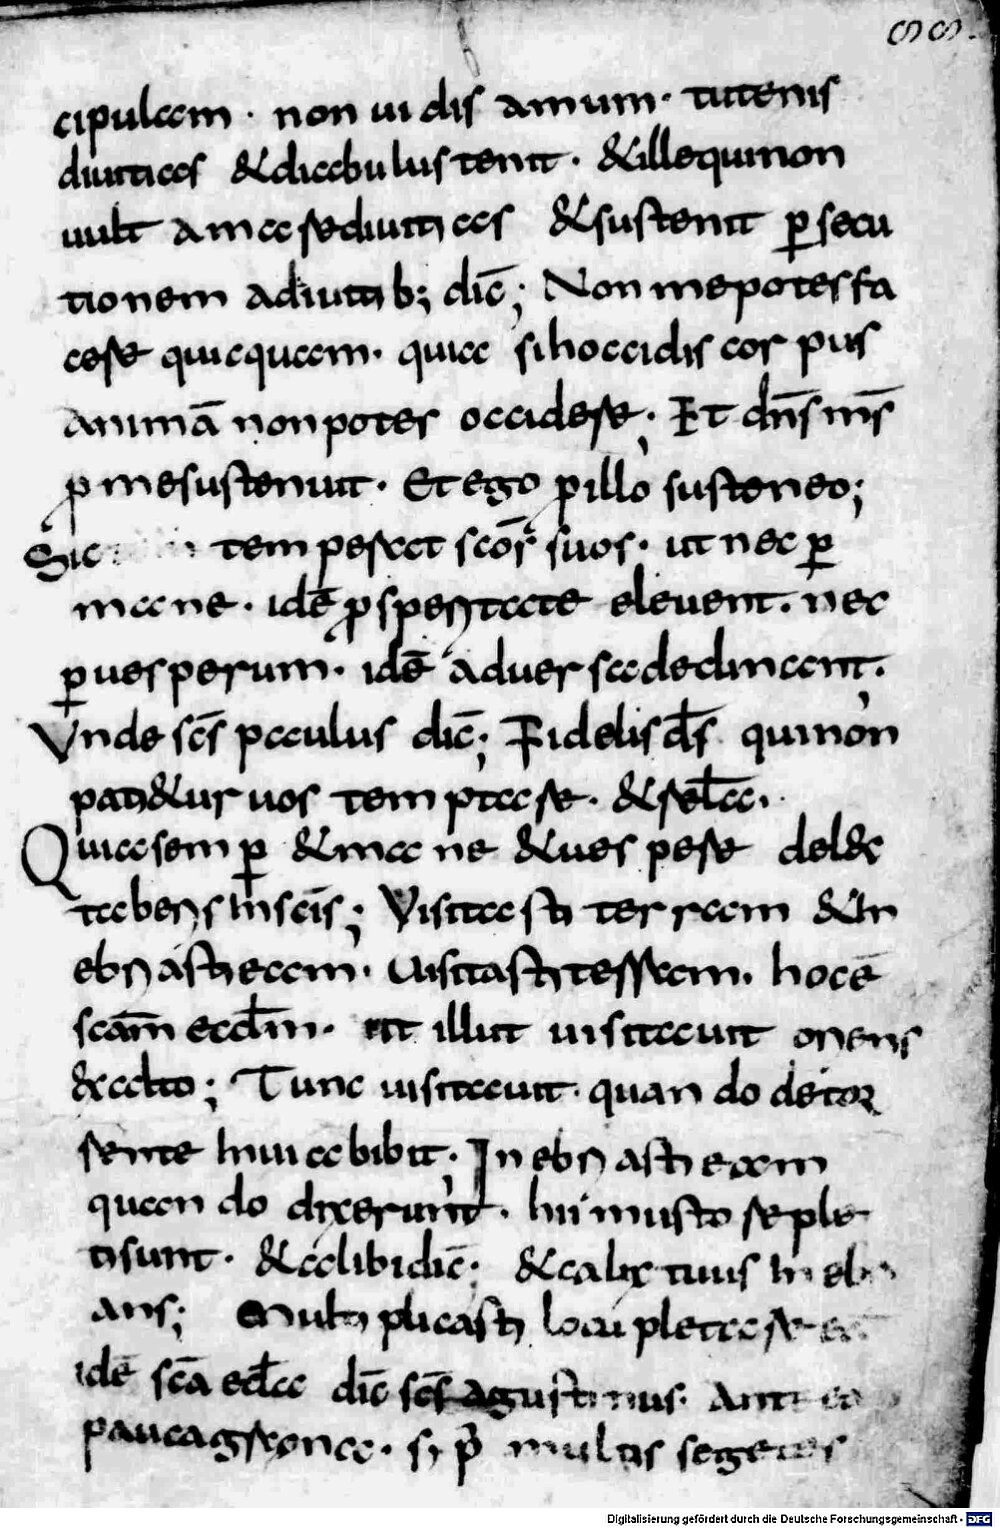 88.
cipulam · non uidis amum · tu tenis
diuitias & diabulus tenit · & ille qui non
uult ama se diuitias & sustenit p̱secu
tionem adiutib; dic̄; Non me potes fa
cere quicquam · quia si hoccidis corpus
animā non potes occidere; Et dn̄s nr̄s
ꝓ me sustenuit · Et ego ꝓ illo susteneo;
Sic tem perat sc̄or̄ suos · ut nec p̱
mane · idē ꝓsperitate eleuent · nec
p̱ uesperum · idē aduersa declinant ·
Vnde sc̄s paulus dic̄; Fidelis d̄s qui non
patietur uos temptare · & rel̄a ·
Quia semp̱ & mane & uespere delec
taberis in sc̄is; Visitasti terram & in
ebriasti eam · Uisitasti terram · hoc ē
sc̄am eccl̄m · et illut uisitauit oriens
ex alto; Tunc uisitauit · quando de tor
rente in uia bibit · Inebriasti eam
quando dixerunt · hii musto reple
ti sunt · & alibi dic̄; & calix tuus inebri
ans; Multiplicasti locupletare ea
idē sc̄a eccl̄a dic̄ sc̄s agustinus · Ant ea
pauca grana · si p̄ multas segetes
Digitalisierung gefördert durch die Deutsche Forschungsgemeinschaft - DFG